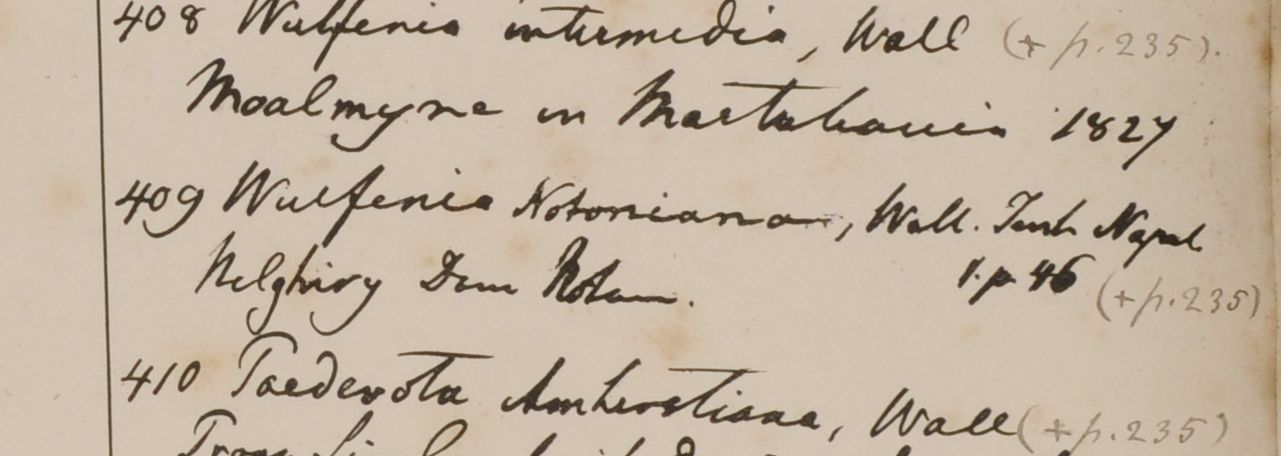 408 Wulfenia intermedia, Wall (+ p. 235).
Moalmyne in Martabania 1827
409 Wulfenia Notoniana, Wall. Tent. Napal.
1. p. 46 (+ p. 235)
Nelghiry Dom Noton.
410 Paederota Amherstiana, Wall (+ p. 235)